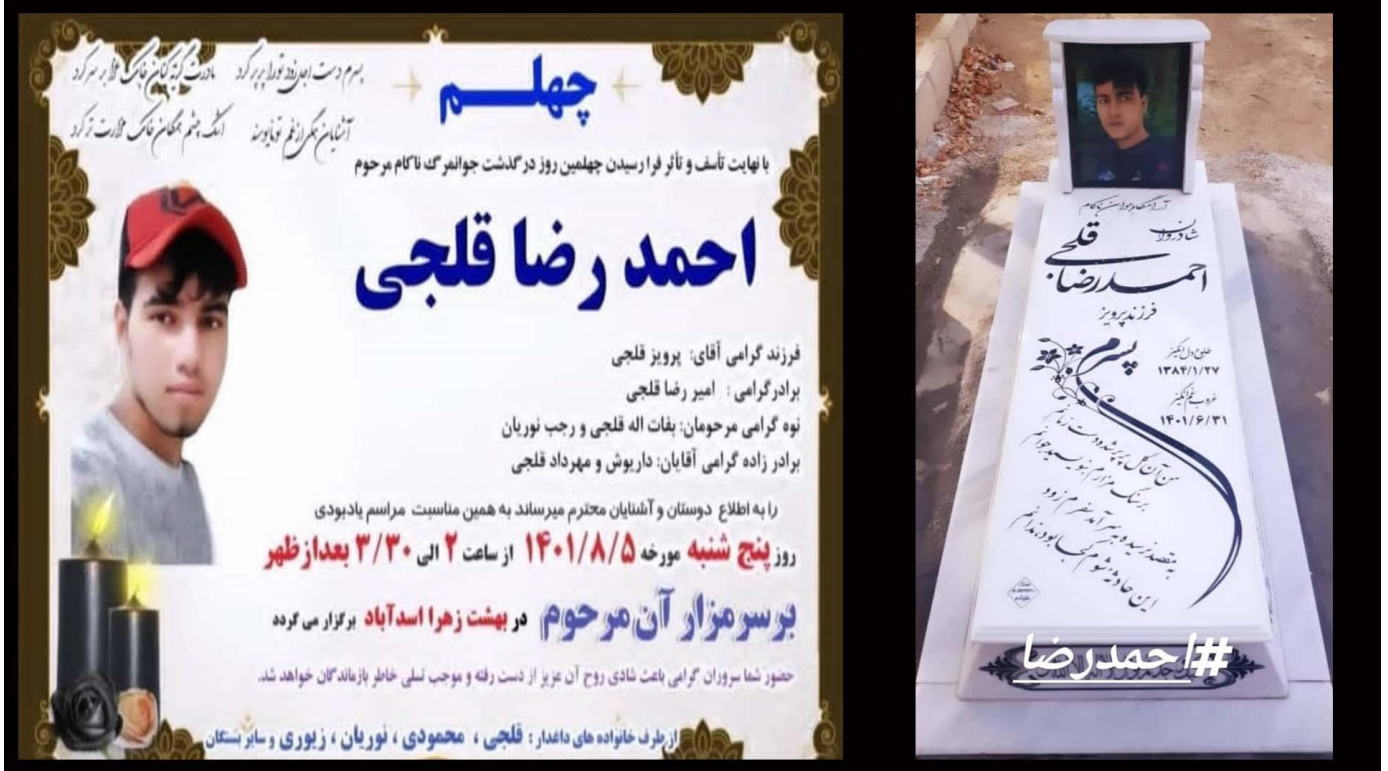 چهلم
پسرم دست اجل زود تو را پرپر کرد
مادرت گریه کنان خاک عزا بر سر کرد
آشنایان همگی از غم تو
اشک چشم همگان خاک مزارت تر کرد
با نهایت تأسف و تأثر فرا رسیدن چهلمین روز درگذشت جوانمرگ ناکام مرحوم
احمد رضا قلجی
فرزند گرامی آقای: پرویز قلجی
برادر گرامی : امیر رضا قلجی
نوه گرامی مرحومان: بفات اله قلجی و رجب نوریان
برادر زاده گرامی آقایان: داریوش و مهرداد قلجی
را به اطلاع دوستان و آشنایان محترم میرساند به همین مناسبت مراسم یادبودی
روز پنج شنبه مورخه ۱۴۰۱/۸/۵ از ساعت ۲ الی ۳/۳۰ بعدازظهر
برسرمزار آن مرحوم در بهشت زهرا اسدآباد برگزار می گردد
حضور شما سروران گرامی باعث شادی روح آن عزیز از دست رفته و موجب تسلی خاطر بازماندگان خواهد شد.
ازطرف خانواده های داغدار: قلجی ، محمودی ، نوریان ، زیوری و سایر بستگان
آرامگاه جوان ناکام
شادروان
احمدرضا قلجی
فرزند پرویز
طلوع دل انگیز
۱۳۸۴/۱/۲۷
غروب غم انگیز
۱۴۰۱/۶/۳۱
پسرم
من آن گل پرپر شده دست زمانم
بر سنگ مزارم بنویسید جوانم
به مقصد نرسیده به سر آمد سفرم زود
این حادثه شوم کجا بود، ندانم
#احمدرضا